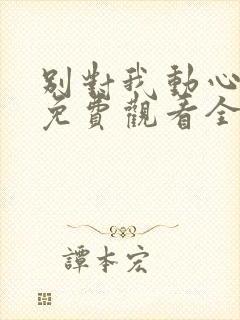 別對我動心
免費觀看全
譚本宏